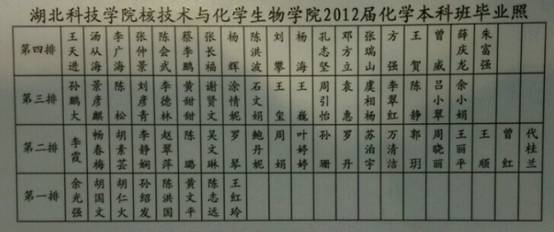 湖北科技学院核技术与化学生物学院2012届化学本科班毕业照
第四排 王天进 汤从海 李广海 张仲景 陈会武 蔡李鹏 张长福 杨辉 陈洪波 刘攀 杨海 孔志坚 邓方立 张瑞山 方强 王贺 曾威 薛庆龙 朱富强
第三排 孙鹏大 景彦麒 陈松 刘彦青 李德林 黄甜甜 谢贤文 涂情妮 石文娟 王宝 王巍 周引怡 袁惠 虞相杨 李翠红 陈静 吕小翠 余小娟
第二排 李霞 杨春梅 胡素芸 李静娴 赵翠萍 陈璐 吴文琳 罗琴 鲍丹妮 周娟 叶婷婷 孙珊 罗丹 苏泊宇 万清洁 郭玥 周晓丽 王丽平 王顺 曾红 代桂兰
第一排 余光强 胡国文 胡仁火 孙绍发 陈洪国 黄文平 陈志远 王红玲